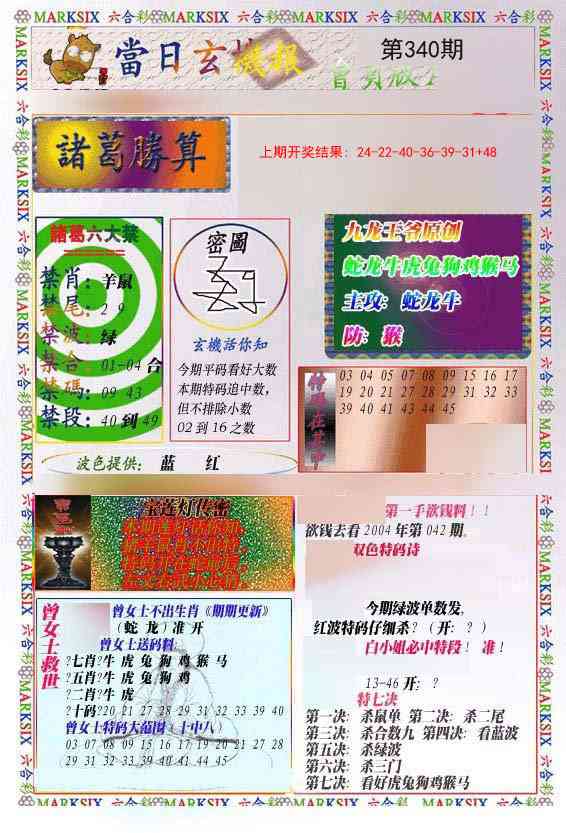 MARKSIX 六合彩 MARKSIX 六合彩 MARKSIX 六合彩 MARKSIX 六合彩
當日玄機報
第340期
諸葛勝算
上期开奖结果：24-22-40-36-39-31+48
諸葛六大禁
禁肖：羊鼠
禁尾：2 9
禁波：绿
禁合：01-04 合
禁碼：09 43
禁段：40 到 49
密圖
玄機活你知
今期平码看好大数
本期特码追中数，
但不排除小数
02 到 16 之数
九龙王爷原创
蛇龙牛虎兔狗鸡猴马
主攻：蛇龙牛
防：猴
03 04 05 07 08 09 15 16 17
19 20 21 27 28 29 31 32 33
39 40 41 43 44 45
波色提供： 蓝 红
宝莲灯传密
第一手欲钱料！！
欲钱去看 2004 年第 042 期。
双色特码诗
今期绿波单数发，
红波特码仔细杀？（开：？）
白小姐必中特段！ 准！
13-46 开：？
特七决
第一决：杀鼠单 第二决：杀二尾
第三决：杀合数九 第四决：看蓝波
第五决：杀绿波
第六决：杀三门
第七决：看好虎兔狗鸡猴马
曾女士救世
曾女士不出生肖《期期更新》
（蛇 龙）准 开
曾女士送码料：
?七肖?牛 虎 兔 狗 鸡 猴 马
?五肖?牛 虎 兔 狗 鸡
?二肖?牛 虎
?十码?20 21 27 28 29 31 32 33 39 40
曾女士特码大范围（十中八）
03 07 08 09 15 16 17 19 20 21 27 28
29 31 32 33 39 40 41 44 45
MARKSIX 六合彩 MARKSIX 六合彩 MARKSIX 六合彩 MARKSIX 六合彩